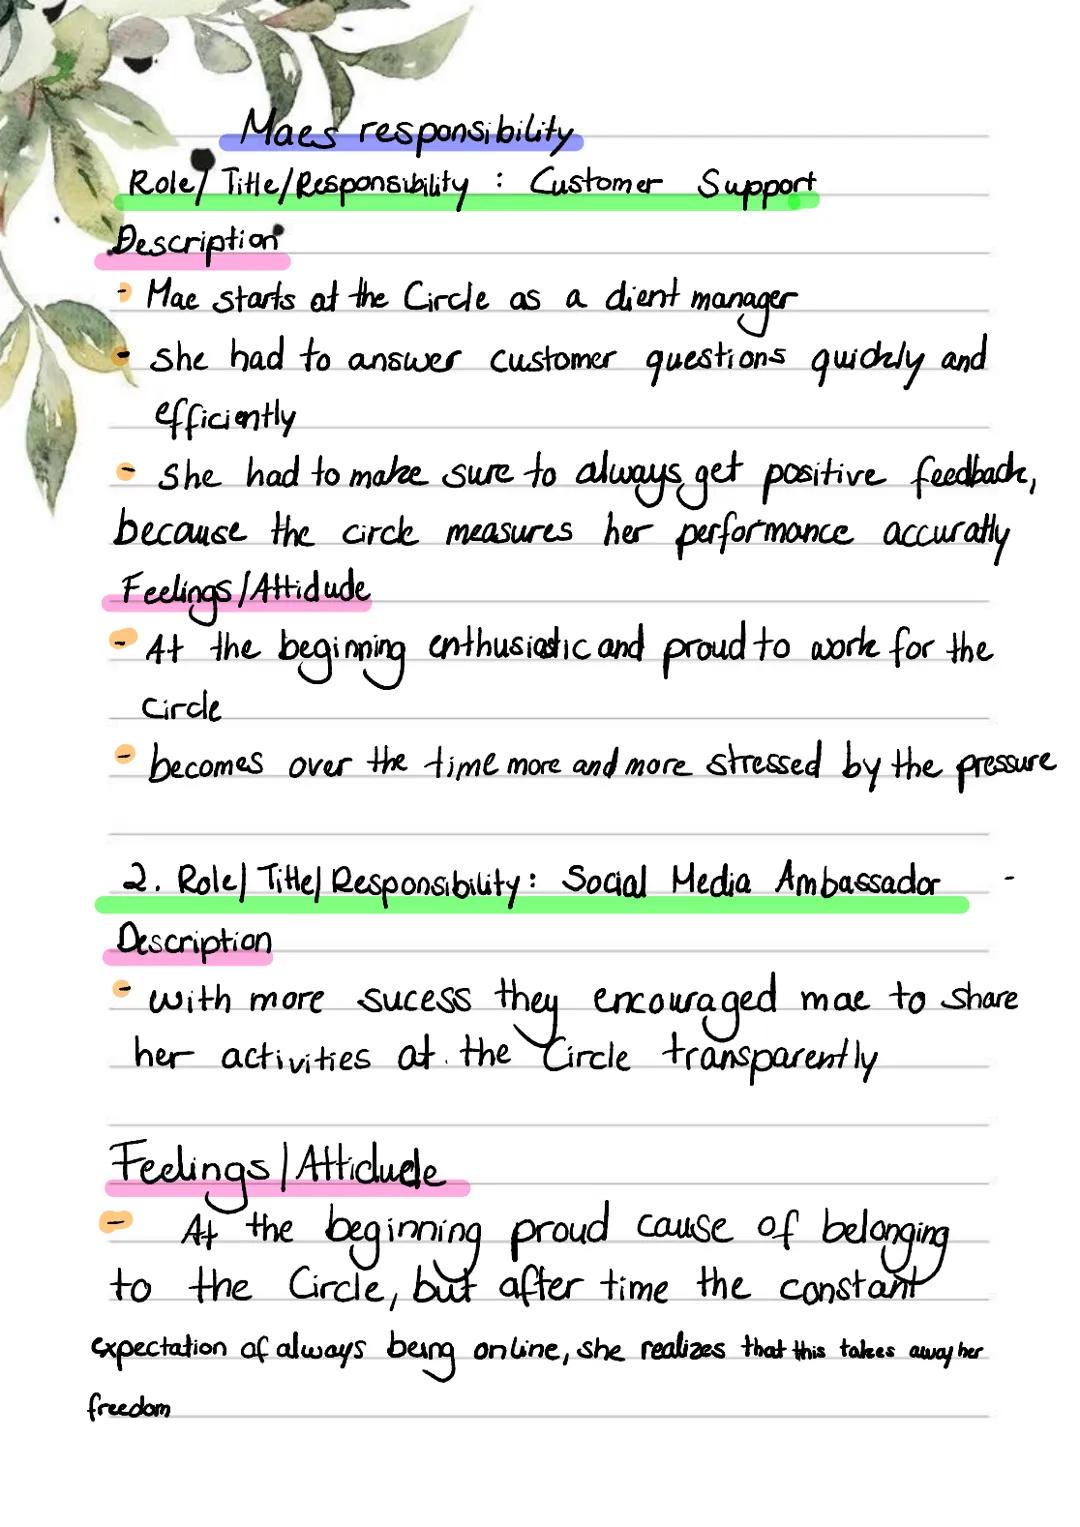 Maes responsibility
Role/Title/Responsibility : Customer Support
Description
- Mae starts at the Circle as a client manager
- she had to answer customer questions quickly and
efficiently
- She had to make sure to always get positive feedback,
because the circle measures her performance accuratly
Feelings/Attidude
- At the beginning enthusiastic and proud to work for the
Circle
- becomes over the time more and more stressed by the pressure
2. Role/Title/Responsibility: Social Media Ambassador -
Description
- with more sucess they encouraged mae to share
her activities at the Circle transparently
Feelings/Attidude
- At the beginning proud cause of belonging
to the Circle, but after time the constant
expectation of always being online, she realizes that this takes away her
freedom